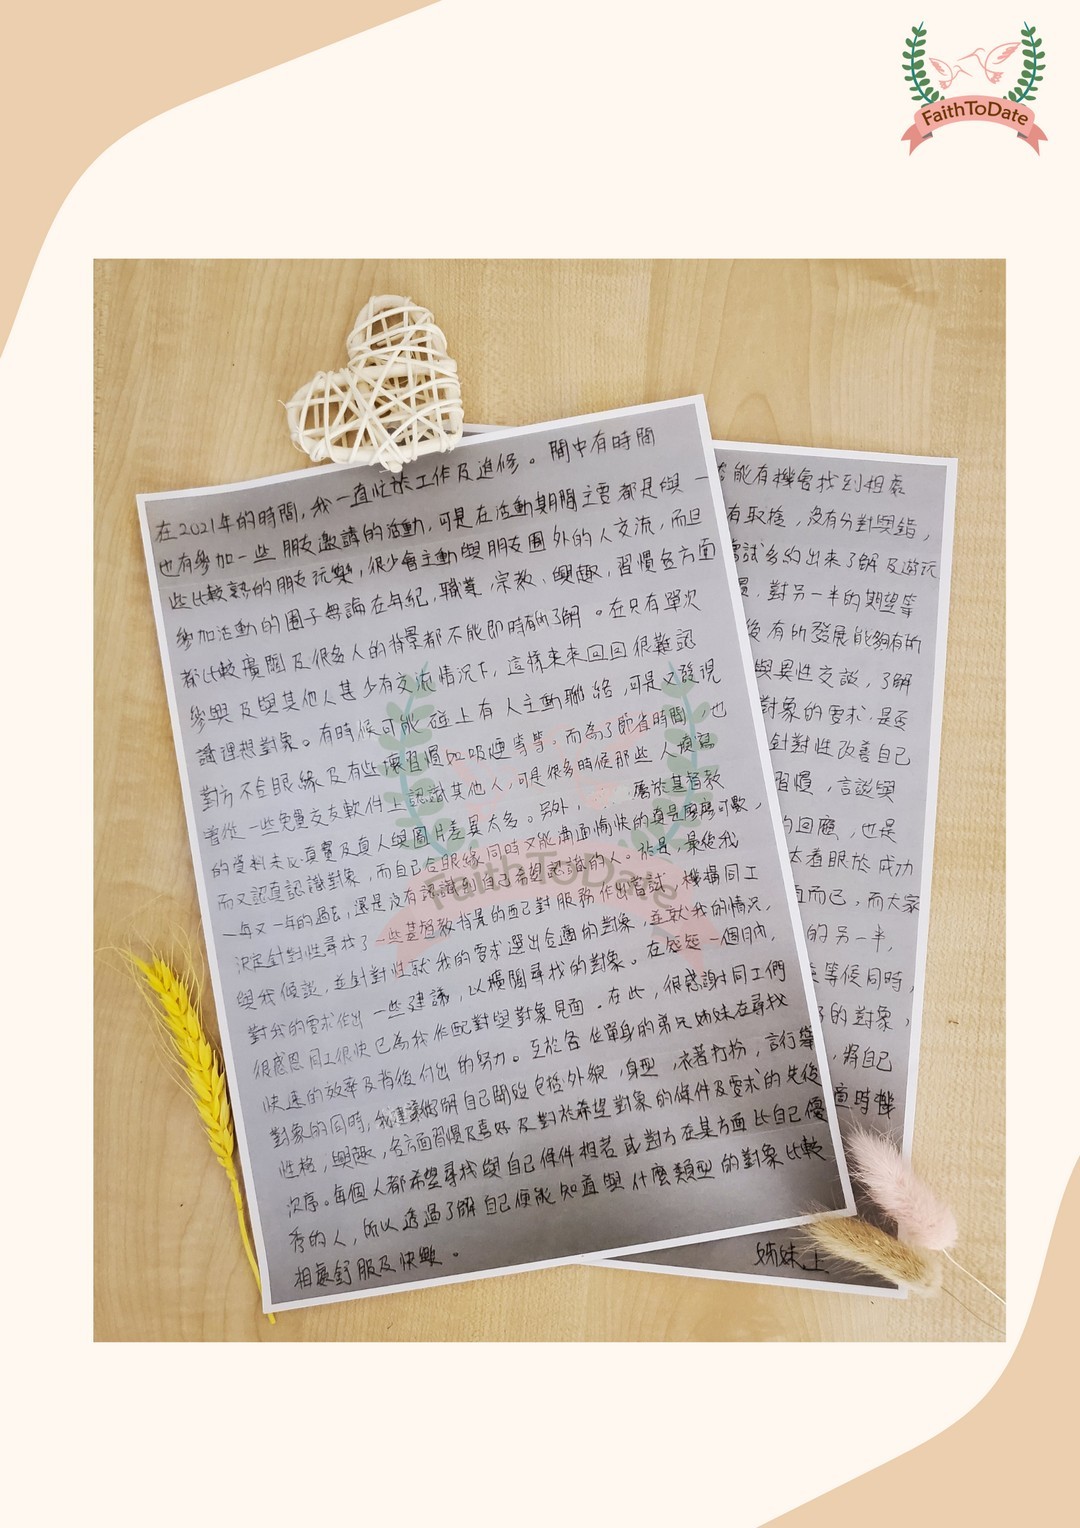 FaithToDate
在2021年的時間,我一直忙於工作及進修。間中有時間
也有參加一些朋友邀請的活動,可是在活動期間主要都是與一
些比較熟的朋友玩樂,很少會主動與朋友圈外的人交流,而且
參加活動的圈子無論在年紀,職業,宗教,興趣,習慣各方面
都比較廣闊及很多人的背景都不能即時有所了解。在只有單次
參與及與其他人甚少有交流情況下,這樣來來回回很難認
識理想對象。有時候可能碰上有人主動聯絡,可是又發現
對方不合眼緣及有些壞習慣如吸煙等等。而為了節省時間,也
嘗從一些免費交友軟件上認識其他人,可是很多時候那些人填寫
的資料未必真實及真人與圖片差異太多。另外, 屬於基督教
而又認真認識對象,而自己合眼緣同時又能溝通愉快的真是屈指可數,
一年又一年的過去,還是沒有認識到自己希望認識的人。於是,最後我
決定針對性尋找了一些基督教背景的配對服務作出嘗試,機構同工
與我傾談,並針對性就我的需求選出合適的對象,並就我的情況,
對我的需求作出一些建議,以擴闊尋找的對象。在短短一個月內,
很感恩同工很快已為我作配對與對象見面。在此,很感謝同工們
快速的效率及背後付出的努力。至於各位單身的弟兄姊妹在尋找
對象的同時,我建議從了解自己開始包括外貌,身型,衣著打扮,言行舉
性格,興趣,各方面習慣及喜好及對於希望對象的條件及要求的先後
次序。每個人都希望尋找與自己條件相若或對方在某方面比自己優
秀的人,所以透過了解自己便能知道與什麼類型的對象比較
相處舒服及快樂。
能有機會找到相處
有取捨,沒有分對與錯,
嘗試多約出來了解及遊玩
對另一半的期望等
後有所發展能夠有所
與異性交談,了解
對象的要求,是否
針對性改善自己
習慣,言談與
的回應,也是
太着眼於成功
而已,而大家
的另一半,
等候同時,
的對象,
,將自己
時機
姊妹上
FaithToDate